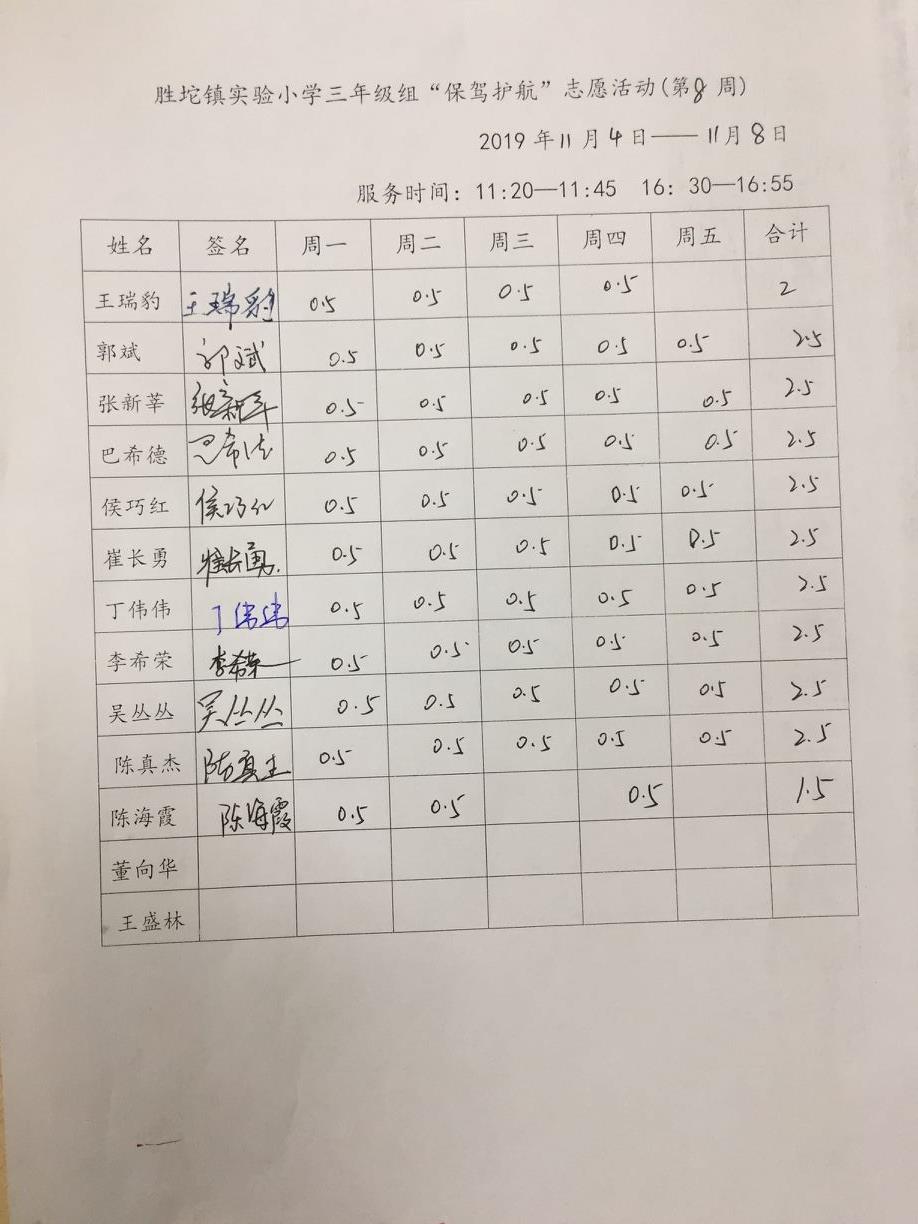 胜坨镇实验小学三年级组“保驾护航”志愿活动(第8周)
2019年11月4日——11月8日
服务时间：11:20—11:45 16：30—16:55
姓名 签名 周一 周二 周三 周四 周五 合计
王瑞豹 王瑞豹 0.5 0.5 0.5 0.5 2
郭斌 郭斌 0.5 0.5 0.5 0.5 0.5 2.5
张新莘 张新莘 0.5 0.5 0.5 0.5 0.5 2.5
巴希德 巴希德 0.5 0.5 0.5 0.5 0.5 2.5
侯巧红 侯巧红 0.5 0.5 0.5 0.5 0.5 2.5
崔长勇 崔长勇 0.5 0.5 0.5 0.5 0.5 2.5
丁伟伟 丁伟伟 0.5 0.5 0.5 0.5 0.5 2.5
李希荣 李希荣 0.5 0.5 0.5 0.5 0.5 2.5
吴丛丛 吴丛丛 0.5 0.5 0.5 0.5 0.5 2.5
陈真杰 陈真杰 0.5 0.5 0.5 0.5 0.5 2.5
陈海霞 陈海霞 0.5 0.5 0.5 1.5
董向华
王盛林